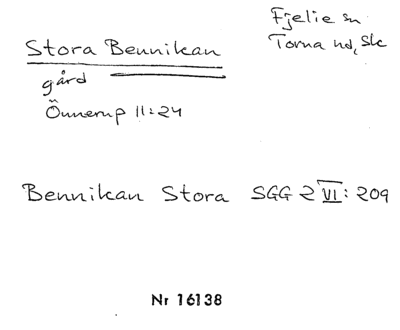 Stora Bennikan
Fjelie sn
Torna hd, Sk
gård
Önnerup 11:24
Bennikan Stora SGG 2 VI: 209
Nr 16138